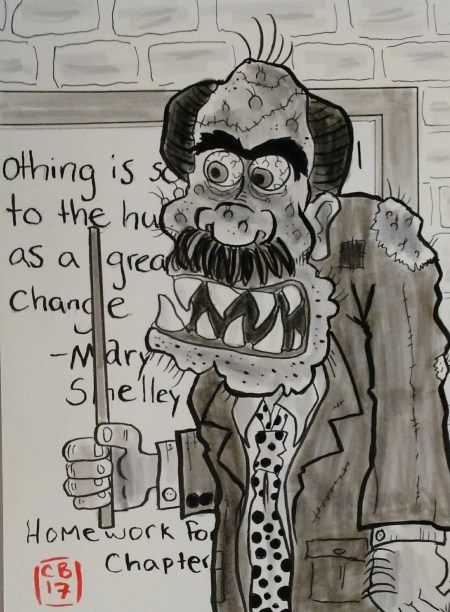 othing is s
to the hu
as a grea
change
-Mary
Shelley
Homework fo
Chapter
CB
17